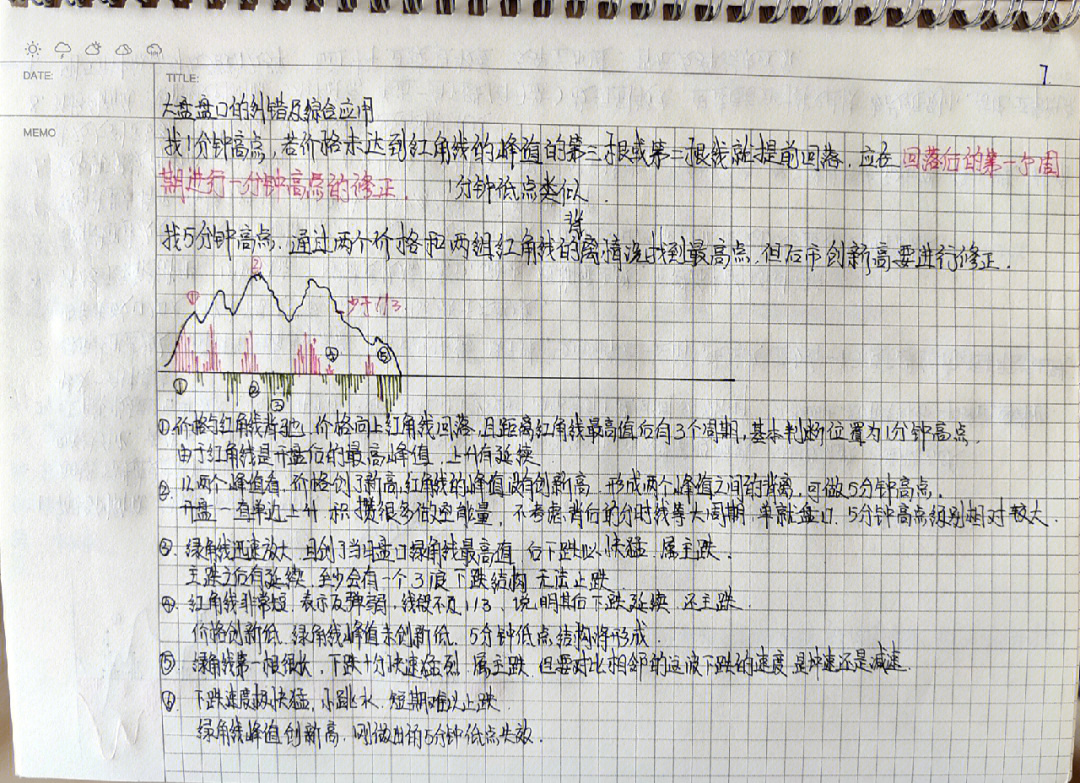 7
DATE:
TITLE:
大盘盘口的纠错及综合应用
MEMO
找1分钟高点,若价格未达到红角线的峰值的第三根或第二根线就提前回落.应在回落后的第一个周
期进行一分钟高点的修正. 1分钟低点类似.
背
找5分钟高点.通过两个价格和两组红角线的离情况找到最高点,但后市创新高要进行修正.
①
②
少于1/3.
④
⑤
①
②
③
①价格与红角线背驰,价格向上红角线回落,且距离红角线最高值后有3个周期,基本判断位置为1分钟高点.
由于红角线是开盘后的最高峰值,上升有延续
②.以两个峰值看,价格创了新高,红角线的峰值没有创新高.形成两个峰值之间的背离,可做5分钟高点.
开盘一直单边上升.积攒很多做空能量,不考虑背后的分时线等大周期,单就盘口,5分钟高点级别相对较大.
③.绿角线迅速放大,且创了当日盘口绿角线最高值,后下跌以快猛,属主跌.
主跌之后有延续.至少会有一个3浪下跌结构,无法止跌
④.红角线非常短,表示反弹弱,线段不及1/3,说明其后下跌延续,还主跌.
价格创新低,绿角线峰值未创新低.5分钟低点结构将形成.
⑤.绿角线第一根很长,下跌十分快速猛烈.属主跌.但要对比相邻的这波下跌的速度是冲速还是减速.
下跌速度极快猛,小跳水.短期难以止跌.
绿角线峰值创新高.刚做出的5分钟低点失效.